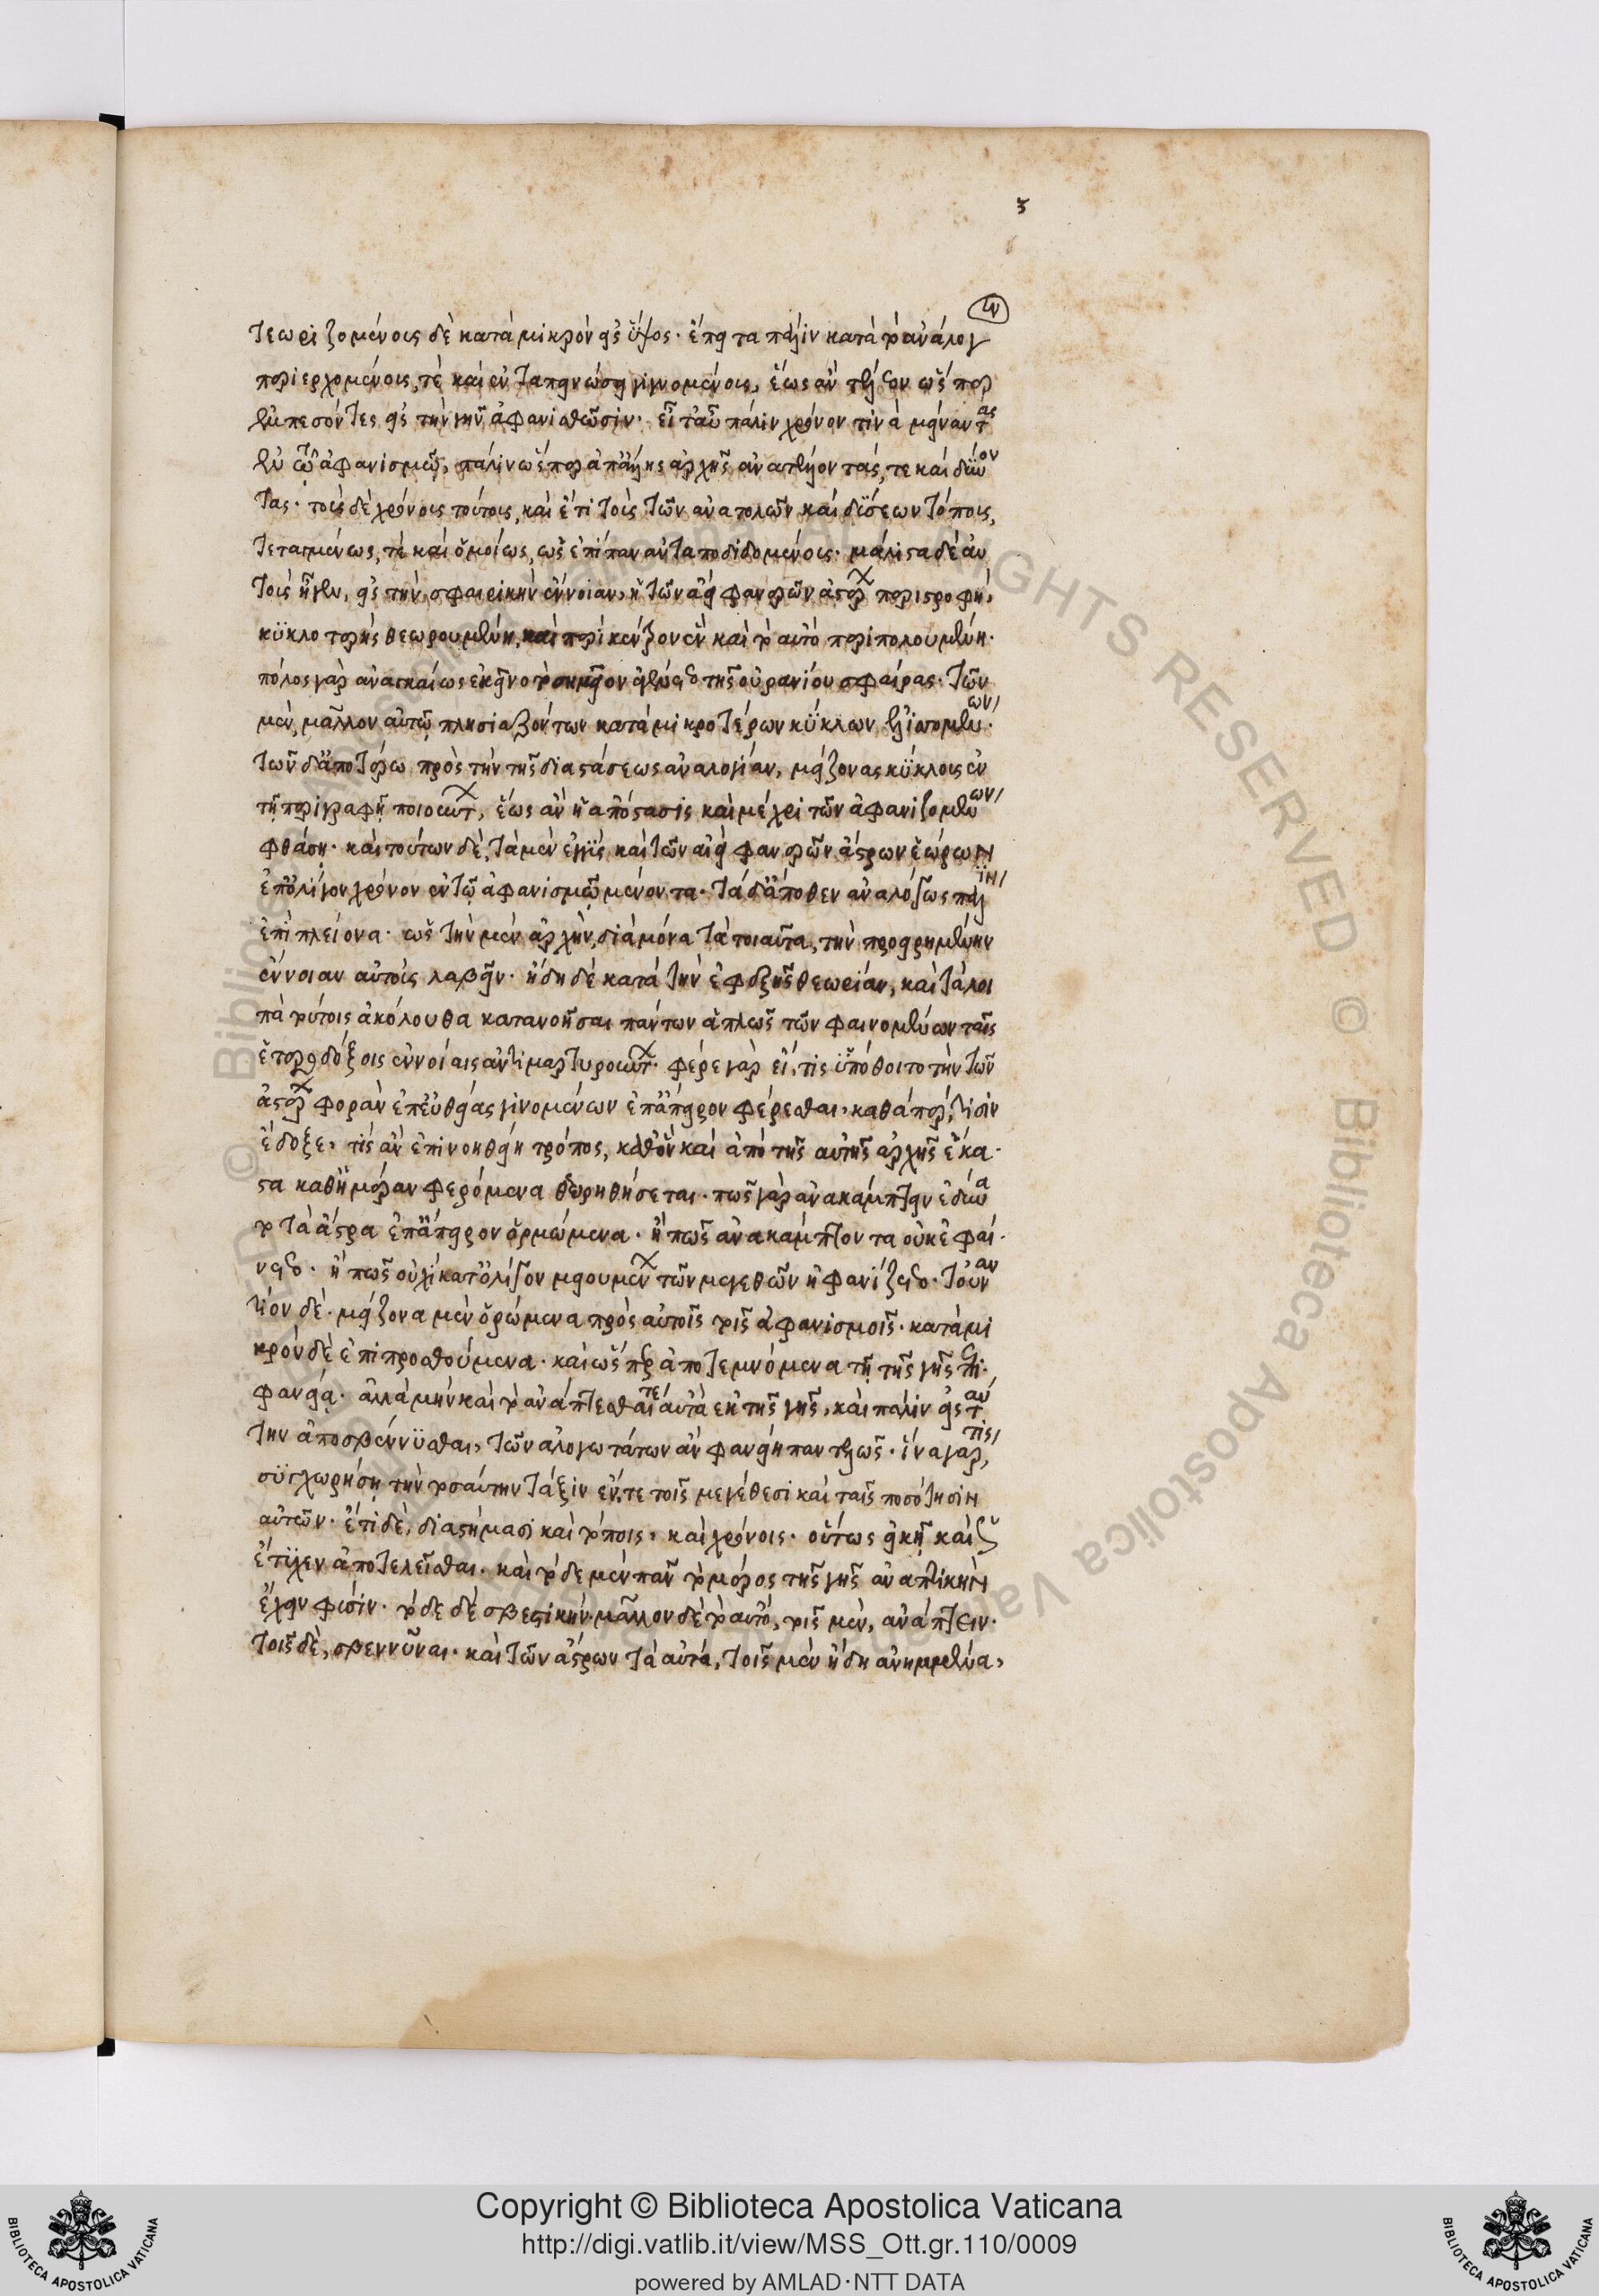 ϛ
ον
τεωριζομένους δὲ κατὰ μικρὸν εἰς ὕψος· ἔπειτα πάλιν κατὰ τὸ ἀνάλογ
περιερχομένους, τὲ καὶ ἐν ταπεινώσει γιγνομένους, ἕως ἂν τέλεον ὥσπερ
ἐμπεσόντες εἰς τὴν γῆν ἀφανισθῶσιν· εἶτ' αὖ πάλιν χρόνον τινὰ μείναντας
ἐν τῶ ἀφανισμῶ, πάλιν ὥσπερ ἀπ' ἄλλης ἀρχῆς ἀνατέλλοντάς, τε καὶ δύνον
τας· τοὺς δὲ χρόνους τούτους, καὶ ἔτι τοὺς τῶν ἀνατολῶν καὶ δύσεων τόπους,
τεταγμένως, τὲ καὶ ὁμοίως, ὡς ἐπίπαν ἀνταποδιδομένους· μάλιστα δὲ αὐ
τοὺς ἦγεν, εἰς τὴν σφαιρικὴν ἔννοιαν, ἡ τῶν ἀεὶ φανερῶν ἀστέρων περιστροφὴ,
κυκλοτερὴς θεωρουμένη, καὶ περὶ κέντρον ἓν καὶ τὸ αὐτὸ περιπολουμένη·
πόλος γὰρ ἀναγκαίως ἐκεῖνο τὸ σημεῖον ἐγίνετο τῆς οὐρανίου σφαίρας· τῶν
μὲν, μᾶλλον αὐτῶ πλησιαζόντων κατὰ μικροτέρων κύκλων ἑλισσομένων·
τῶν δ' ἀποτέρω πρὸς τὴν τῆς διαστάσεως ἀναλογίαν, μείζονας κύκλους ἐν
τῆ περιγραφῆ ποιούντων, ἕως ἂν ἡ ἀπόστασις καὶ μέχρι τῶν ἀφανιζομένων
φθάση· καὶ τούτων δὲ, τὰ μὲν ἐγγὺς καὶ τῶν αἰεὶ φανερῶν ἄστρων ἑώρων
ἐπ' ὀλίγον χρόνον ἐν τῶ ἀφανισμῶ μένοντα· τὰ δ' ἄποθεν ἀναλόγως πάλιν
ἐπὶ πλείονα· ὡς τὴν μὲν ἀρχὴν, διὰ μόνα τὰ τοιαῦτα, τὴν προειρημένην
ἔννοιαν αὐτοὺς λαβεῖν· ἤδη δὲ κατὰ τὴν ἐφεξῆς θεωρίαν, καὶ τὰ λοι
πὰ τούτοις ἀκόλουθα κατανοῆσαι πάντων ἁπλῶς τῶν φαινομένων ταῖς
ἑτεροδόξοις ἐννοίαις ἀντιμαρτυρούντων· φέρε γὰρ εἴ, τις ὑπόθοιτο τὴν τῶν
ἀστέρων φορὰν ἐπ' εὐθείας γινομένων ἐπ' ἄπειρον φέρεσθαι, καθάπερ, τισὶν
ἔδοξε, τίς ἂν ἐπινοηθείη τρόπος, καθ' ὃν καὶ ἀπὸ τῆς αὐτῆς ἀρχῆς ἕκα
στα καθ' ἡμέραν φερόμενα θεωρηθήσεται· πῶς γὰρ ἀνακάμπτειν ἐδύνα
το τὰ ἄστρα ἐπ' ἄπειρον ὁρμώμενα· ἢ πῶς ἀνακάμπτοντα οὐκ ἐφαί
νετο· ἢ πῶς οὐχὶ κατ' ὀλίγον μειουμένων τῶν μεγεθῶν ἠφανίζετο· τοὐναν
τίον δὲ· μείζονα μὲν ὁρώμενα πρὸς αὐτοῖς τοῖς ἀφανισμοῖς· κατὰ μι
κρὸν δὲ ἐπιπροσθούμενα· καὶ ὥσπερ ἀποτεμνόμενα τῆ τῆς γῆς ἐπι
φανεία· ἀλλὰ μὴν καὶ τὸ ἀνάπτεσθαί τε αὐτὰ ἐκ τῆς γῆς, καὶ πάλιν εἰς ταύ
την ἀποσβέννυσθαι, τῶν ἀλογωτάτων ἂν φανείη παντελῶς· ἵνα γάρ, τις
συγχωρήση τὴν τοσαύτην τάξιν ἔν, τε τοῖς μεγέθεσι καὶ ταῖς ποσότησιν
αὐτῶν· ἔτι δὲ, διαστήμασι καὶ τόποις, καὶ χρόνοις· οὕτως εἰκῆ καὶ ὡς
ἔτυχεν ἀποτελεῖσθαι· καὶ τόδε μὲν πᾶν τὸ μέρος τῆς γῆς ἀναπτικὴν
ἔχειν φύσιν· τόδε δὲ σβεστικὴν· μᾶλλον δὲ τὸ αὐτὸ, τοῖς μὲν, ἀνάπτειν·
τοῖς δὲ, σβεννῦναι· καὶ τῶν ἄστρων τὰ αὐτὰ, τοῖς μὲν ἤδη ἀνημμένα,
Copyright © Biblioteca Apostolica Vaticana
http://digi.vatlib.it/view/MSS_Ott.gr.110/0009
powered by AMLAD·NTT DATA
BIBLIOTECA APOSTOLICA VATICANA
BIBLIOTECA APOSTOLICA VATICANA